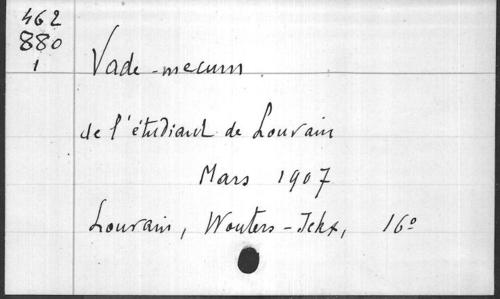 462
880
1
Vade-mecum
de l'étudiant de Louvain
Mars 1907
Louvain, Wouters-Ickx, 16º